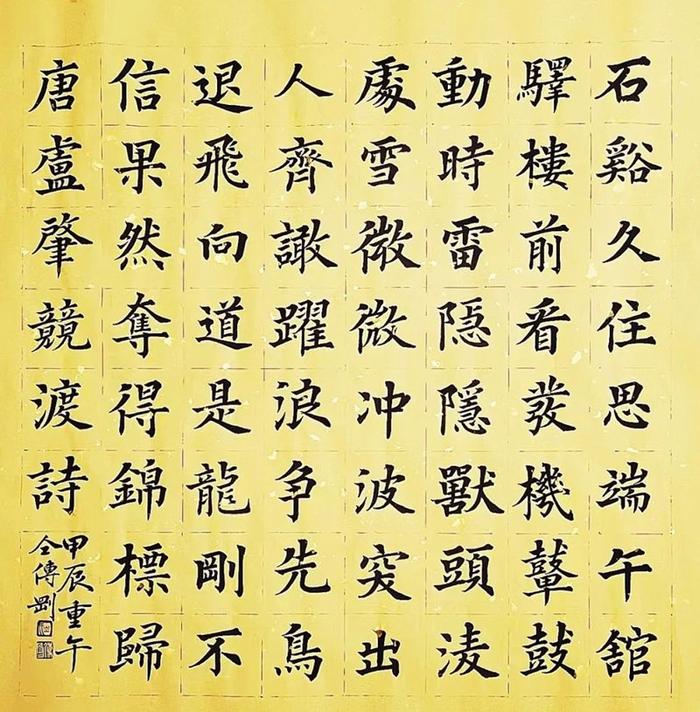 石谿久住思端午舘
驛樓前看發機鼙鼓
動時雷隐隱獸頭淩
處雪微微冲波突出
人齊譀躍浪争先鳥
退飛向道是龍剛不
信果然奪得錦標歸
唐盧肇競渡詩
甲辰重午
仝傳剛